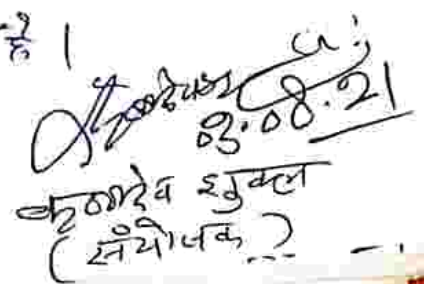 है।
03.08.21
कृष्णदेव शुक्ल
(संयोजक)